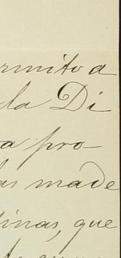 ermito a
la Di
a pro-
as made
tinas, que